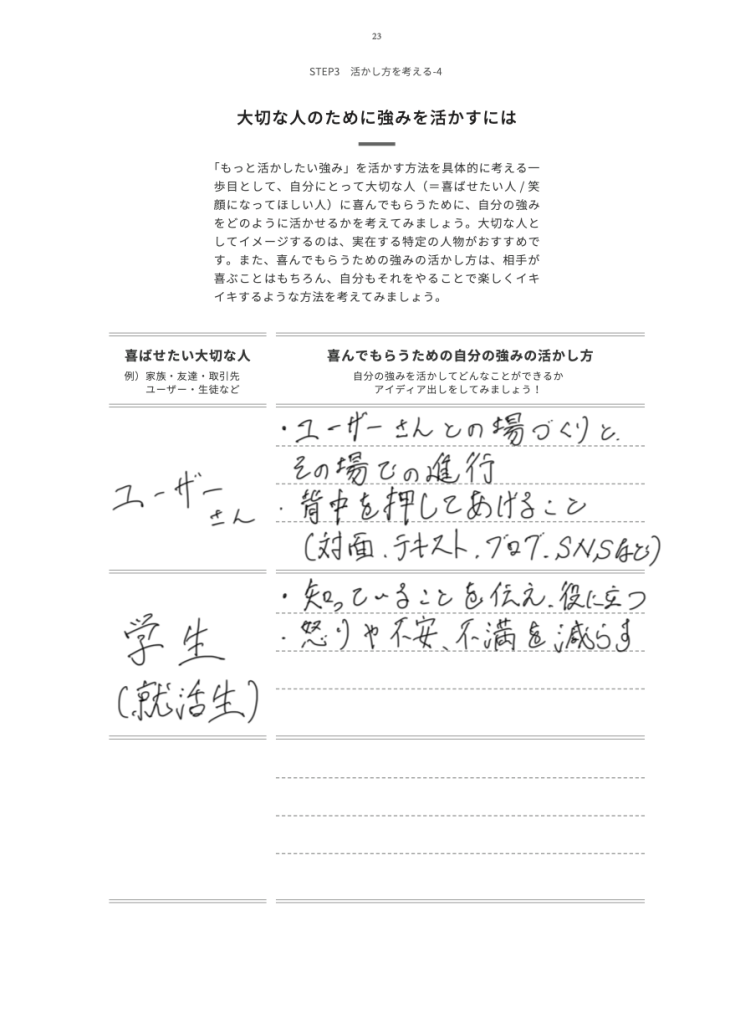 23
STEP3 活かし方を考える-4
大切な人のために強みを活かすには
「もっと活かしたい強み」を活かす方法を具体的に考える一
歩目として、自分にとって大切な人（＝喜ばせたい人 / 笑
顔になってほしい人）に喜んでもらうために、自分の強み
をどのように活かせるかを考えてみましょう。大切な人と
してイメージするのは、実在する特定の人物がおすすめで
す。また、喜んでもらうための強みの活かし方は、相手が
喜ぶことはもちろん、自分もそれをやることで楽しくイキ
イキするような方法を考えてみましょう。
喜ばせたい大切な人
例）家族・友達・取引先
ユーザー・生徒など
喜んでもらうための自分の強みの活かし方
自分の強みを活かしてどんなことができるか
アイディア出しをしてみましょう！
ユーザー
さん
・ユーザーさんとの場づくりと、
その場での進行
・背中を押してあげること
（対面、テキスト、ブログ、SNSなど）
学生
（就活生）
・知っていることを伝え、役に立つ
・怒りや不安、不満を減らす